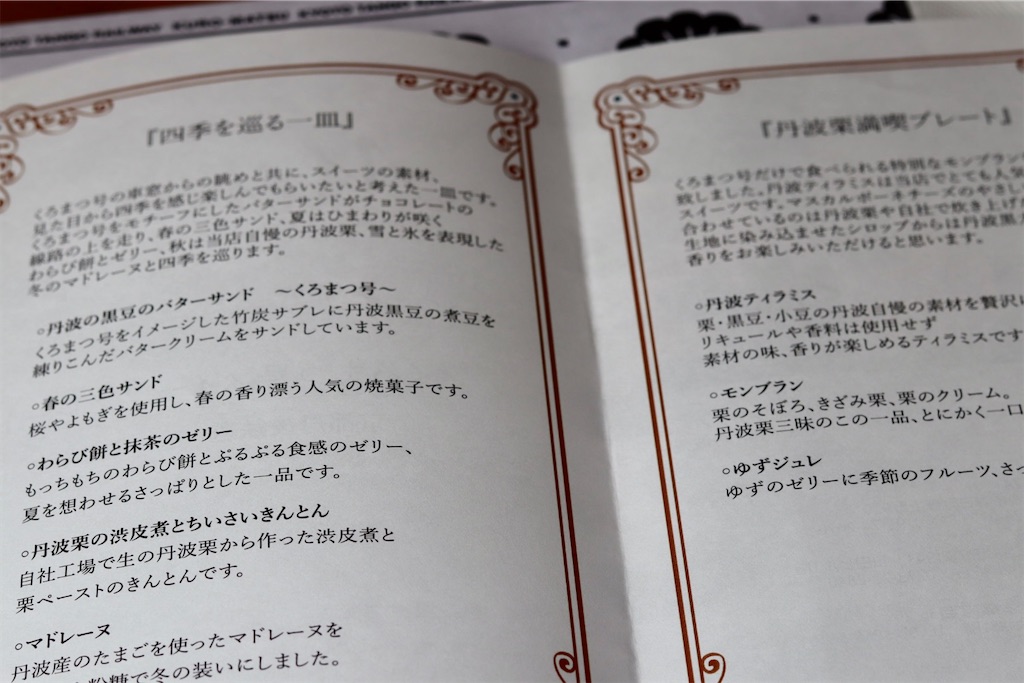 KUROMATSU
『四季を巡る一皿』
くろまつ号の車窓からの眺めと共に、スイーツの素材、
見た目から四季を感じ楽しんでもらいたいと考えた一皿です。
くろまつ号をモチーフにしたバターサンドがチョコレートの
線路の上を走り、春の三色サンド、夏はひまわりが咲く
わらび餅とゼリー、秋は当店自慢の丹波栗、雪と氷を表現した
冬のマドレーヌと四季を巡ります。
○丹波の黒豆のバターサンド ～くろまつ号～
くろまつ号をイメージした竹炭サブレに丹波黒豆の煮豆を
練りこんだバタークリームをサンドしています。
○春の三色サンド
桜やよもぎを使用し、春の香り漂う人気の焼菓子です。
○わらび餅と抹茶のゼリー
もっちもちのわらび餅とぷるぷる食感のゼリー、
夏を想わせるさっぱりとした一品です。
○丹波栗の渋皮煮とちいさいきんとん
自社工場で生の丹波栗から作った渋皮煮と
栗ペーストのきんとんです。
○マドレーヌ
丹波産のたまごを使ったマドレーヌを
粉糖で冬の装いにしました。
『丹波栗満喫プレート』
くろまつ号だけで食べられる特別なモンブラン
致しました。丹波ティラミスは当店でとても人気
スイーツです。マスカルポーネチーズのやさし
合わせているのは丹波栗や自社で炊き上げ
生地に染み込ませたシロップからは丹波黒
香りをお楽しみいただけると思います。
○丹波ティラミス
栗・黒豆・小豆の丹波自慢の素材を贅沢に
リキュールや香料は使用せず
素材の味、香りが楽しめるティラミスです
○モンブラン
栗のそぼろ、きざみ栗、栗のクリーム。
丹波栗三昧のこの一品、とにかく一口
○ゆずジュレ
ゆずのゼリーに季節のフルーツ、さっ